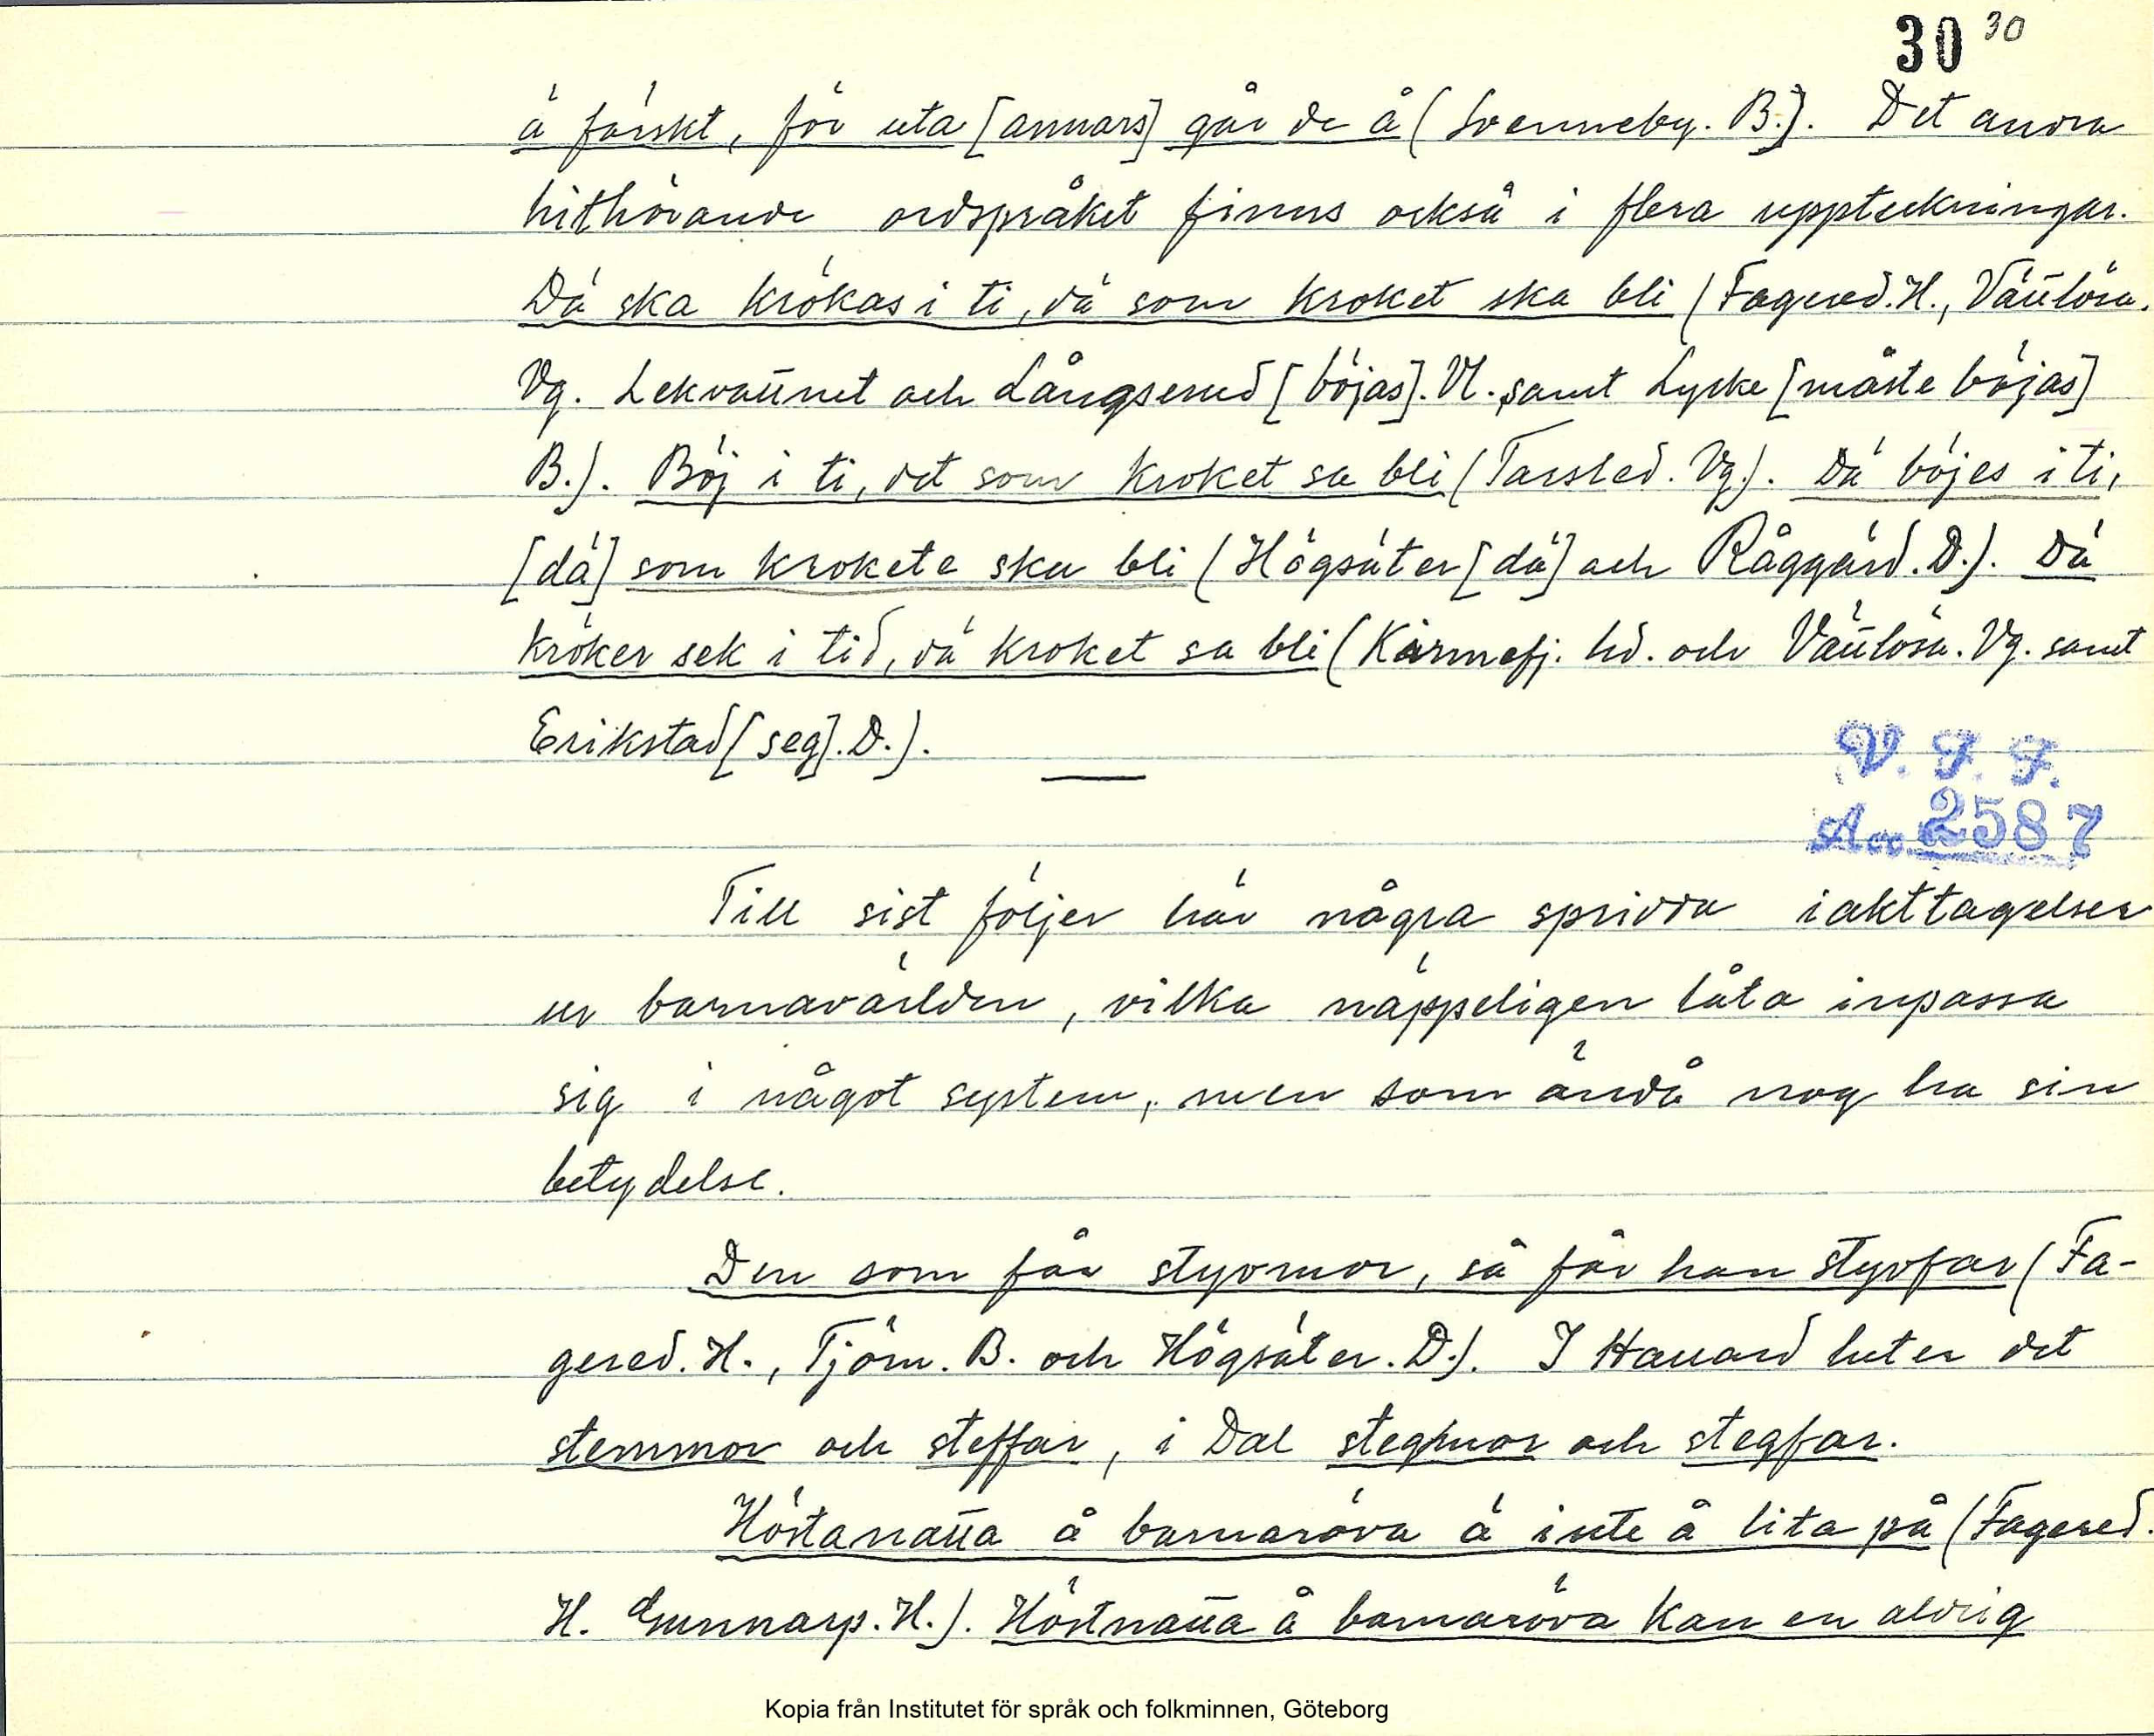 30 30
ä färskt, för uta [annars] går de å (Svenneby. B.). Det andra
hithörande ordspråket finns också i flera uppteckningar.
Dä ska krökas i ti, dä som kroket ska bli (Fagered. H., Vänlösa.
Vg. Lekvattnet och Långserud [böjas]. Vl. samt Lycke [måste böjas]
B.). Böj i ti, det som kroket sa bli (Tarsled. Vg.). Dä böjes i ti,
[dä] som krokete sku bli (Högsäter [dä] och Råggärd. D.). Dä
kröker sek i tid, dä kroket sa bli (Kinnefj. hd. och Vänlösa. Vg. samt
Erikstad [seg]. D.).
V. F. F.
Acc. 2587
Till sist följer här några spridda iakttagelser
ur barnavärlden, vilka näppeligen låta inpassa
sig i något system, men som ändå nog ha sin
betydelse.
Den som får styvmor, så får han styvfar (Fa-
gered. H., Tjörn. B. och Högsäter. D.). I Halland heter det
stemmor och steffar, i Dal stegmor och stegfar.
Höstanatta å barnaröva ä inte å lita på (Fagered.
H. Gunnarp. H.). Höstnatta å barnaröva kan en aldrig
Kopia från Institutet för språk och folkminnen, Göteborg